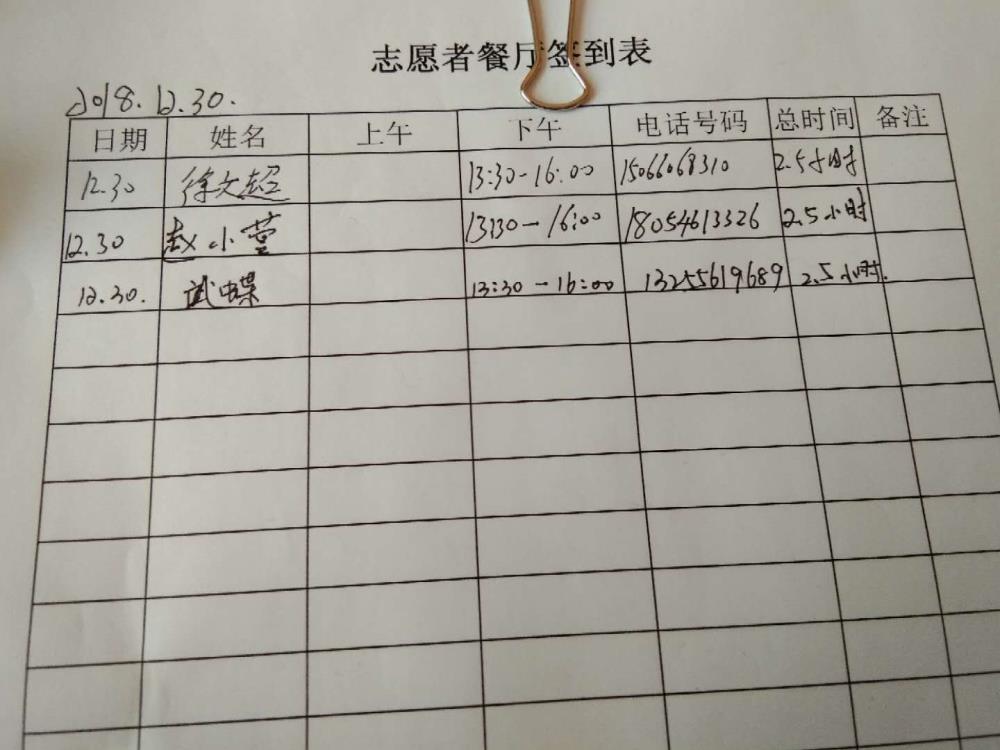 志愿者餐厅签到表
2018.12.30.
日期 姓名 上午 下午 电话号码 总时间 备注
12.30 徐文超 13:30-16:00 15066068310 2.5小时
12.30 赵小莹 13:30-16:00 18054613326 2.5小时
12.30. 武蝶 13:30-16:00 13255619689 2.5小时.